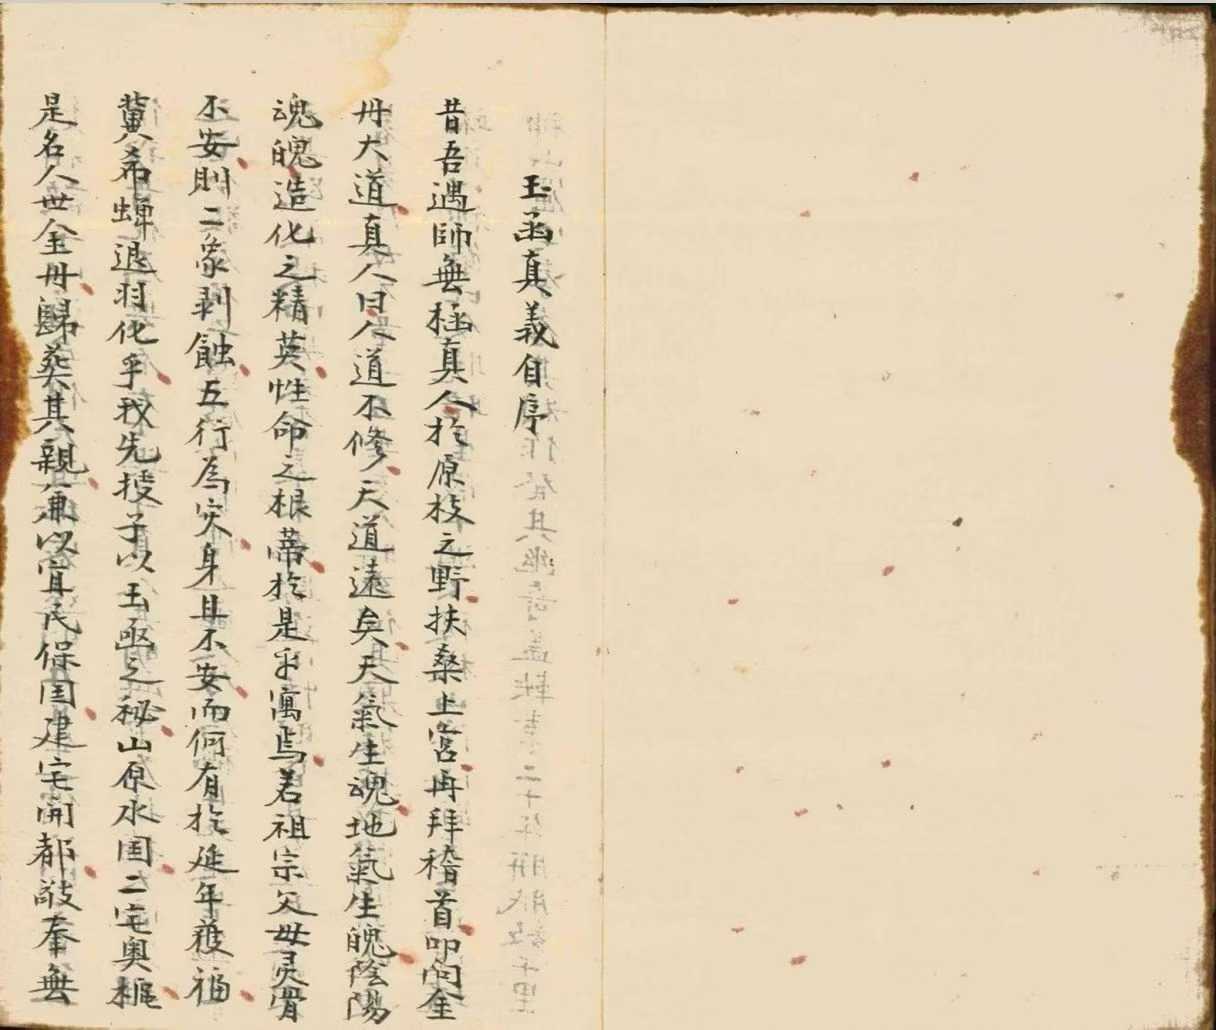 玉函真義自序
昔吾遇師無極真人於原枝之野扶桑上宮再拜稽首叩問金
丹大道真人曰人道不修天道遠矣天氣生魂地氣生魄陰陽
魂魄造化之精英性命之根蒂於是乎寓焉若祖宗父母灵骨
不安則二象剥蝕五行為灾身且不安而何有於延年獲福
冀希蟬退羽化乎我先授子以玉函之秘山原水囯二宅奥樞
是名人世金丹歸葬其親兼以宜民保囯建宅開都敬奉無